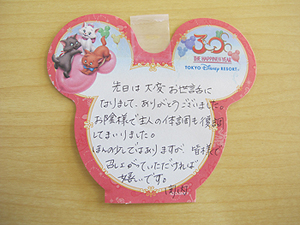 30
THE HAPPINESS YEAR
TOKYO Disney RESORT
先日は大変お世話に
なりまして、ありがとうございました。
お陰様で主人の体調も復調
してまいりました。
ほんの少しではありますが、皆様で
召し上がっていただければ
嬉しいです。